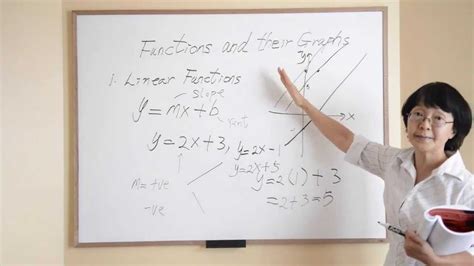 Functions and their Graphs
1. Linear Functions
slope
y = mx + b
y = 2x + 3, y = 2x - 1
y = 2x + 5
m = +ve
-ve
y = 2(1) + 3
= 2 + 3 = 5
y
x